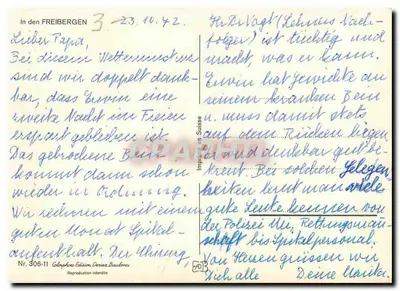 In den FREIBERGEN
3
23.10.42.
Lieber Papa,
Bei diesem Wettersturz
sind wir doppelt dank-
bar, dass Erwin eine
zweite Nacht im Freien
erspart geblieben ist.
Das gebrochene Bein
kommt dann schon
wieder in Ordnung.
Wir rechnen mit einem
guten Monat Spital-
aufenthalt. Der Chirurg
Nr. 306-11
Reproduction interdite
Imprimé en Suisse
Hr. Dr. Vogt (Nach-
folger) ist tüchtig und
macht, was er kann.
Erwin hat Gewichte an
seinem kranken Bein
u. muss damit stets
auf dem Rücken liegen
Er wird dankbar gut be-
treut. Bei solchen Gelegen-
heiten lernt man viele
gute Leute kennen von
der Polizei Uri, Rettungsmann-
schaft bis Spitalpersonal.
Von Herzen grüssen wir
Dich alle Deine